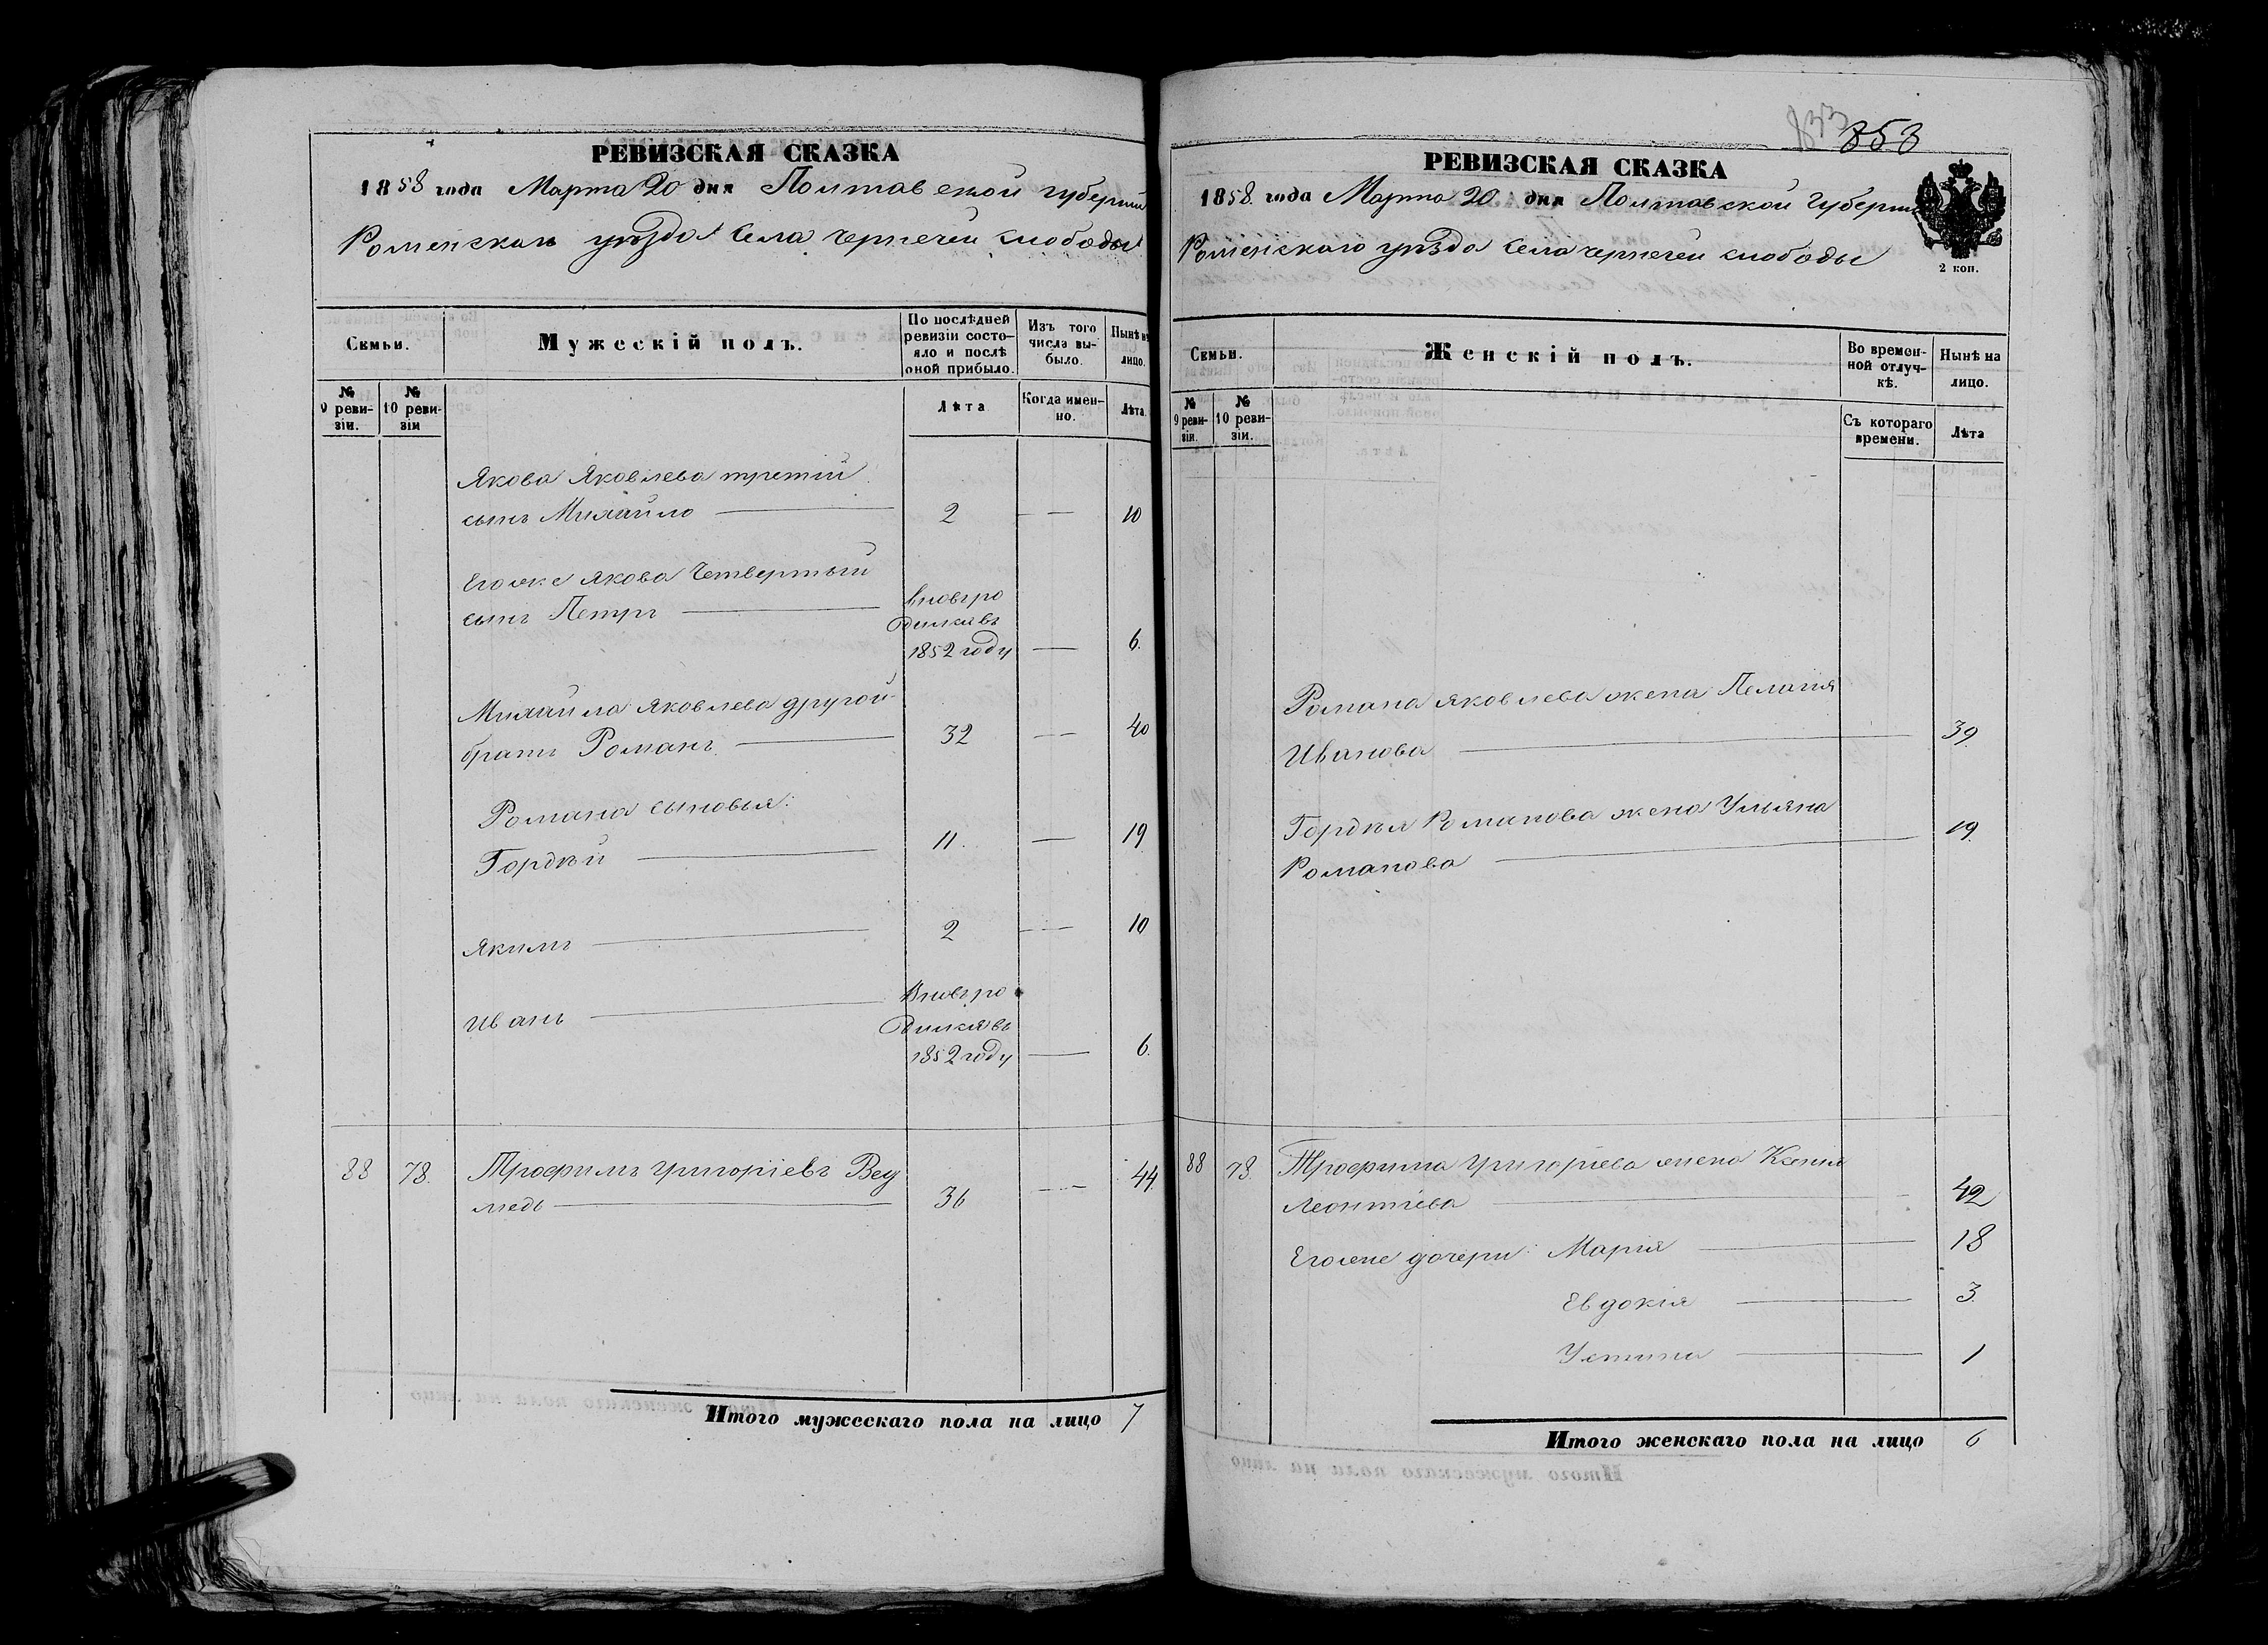 РЕВИЗСКАЯ СКАЗКА
1858 года Марта 20 дня Полтавской губерніи
Роменскаго уѣзда села чернечей слободы
Семьи.
Мужескій полъ.
По послѣдней ревизіи состояло и послѣ оной прибыло.
Изъ того числа выбыло.
Нынѣ на лицо.
№ 9 ревизіи.
№ 10 ревизіи
Лѣта
Когда именно.
Лѣта.
Якова Яковлева третій
сынъ Михайло 2 — 10
Егоже Якова Четвертый
сынъ Петръ вновьро
дился въ
1852 году — 6.
Михайла Яковлева другой
братъ Романъ 32 — 40
Романа сыновья:
Гордѣй 11. — 19
Якимъ 2 — 10
Иванъ Вновьро
дился въ
1852 году — 6.
88 78. Трофимъ Григоріевъ Вед
медь 36 — 44.
Итого мужескаго пола на лицо 7
833
853
РЕВИЗСКАЯ СКАЗКА
1858. года Марта 20 дня Полтавской Губерніи
Роменскаго уѣзда села чернечей слободы
2 коп.
Семьи.
Женскій полъ.
Во временной отлучкѣ.
Нынѣ на лицо.
№ 9 ревизіи.
№ 10 ревизіи.
Съ котораго времени.
Лѣта
Романа Яковлева жена Пелагія
Иванова 39.
Гордѣя Романова жена Ульяна
Романова 19.
88 78. Трофима Григоріева жена Ксенія
Леонтіева 42
Егоже дочери: Марія 18
Евдокія 3.
Устина 1
Итого женскаго пола на лицо 6